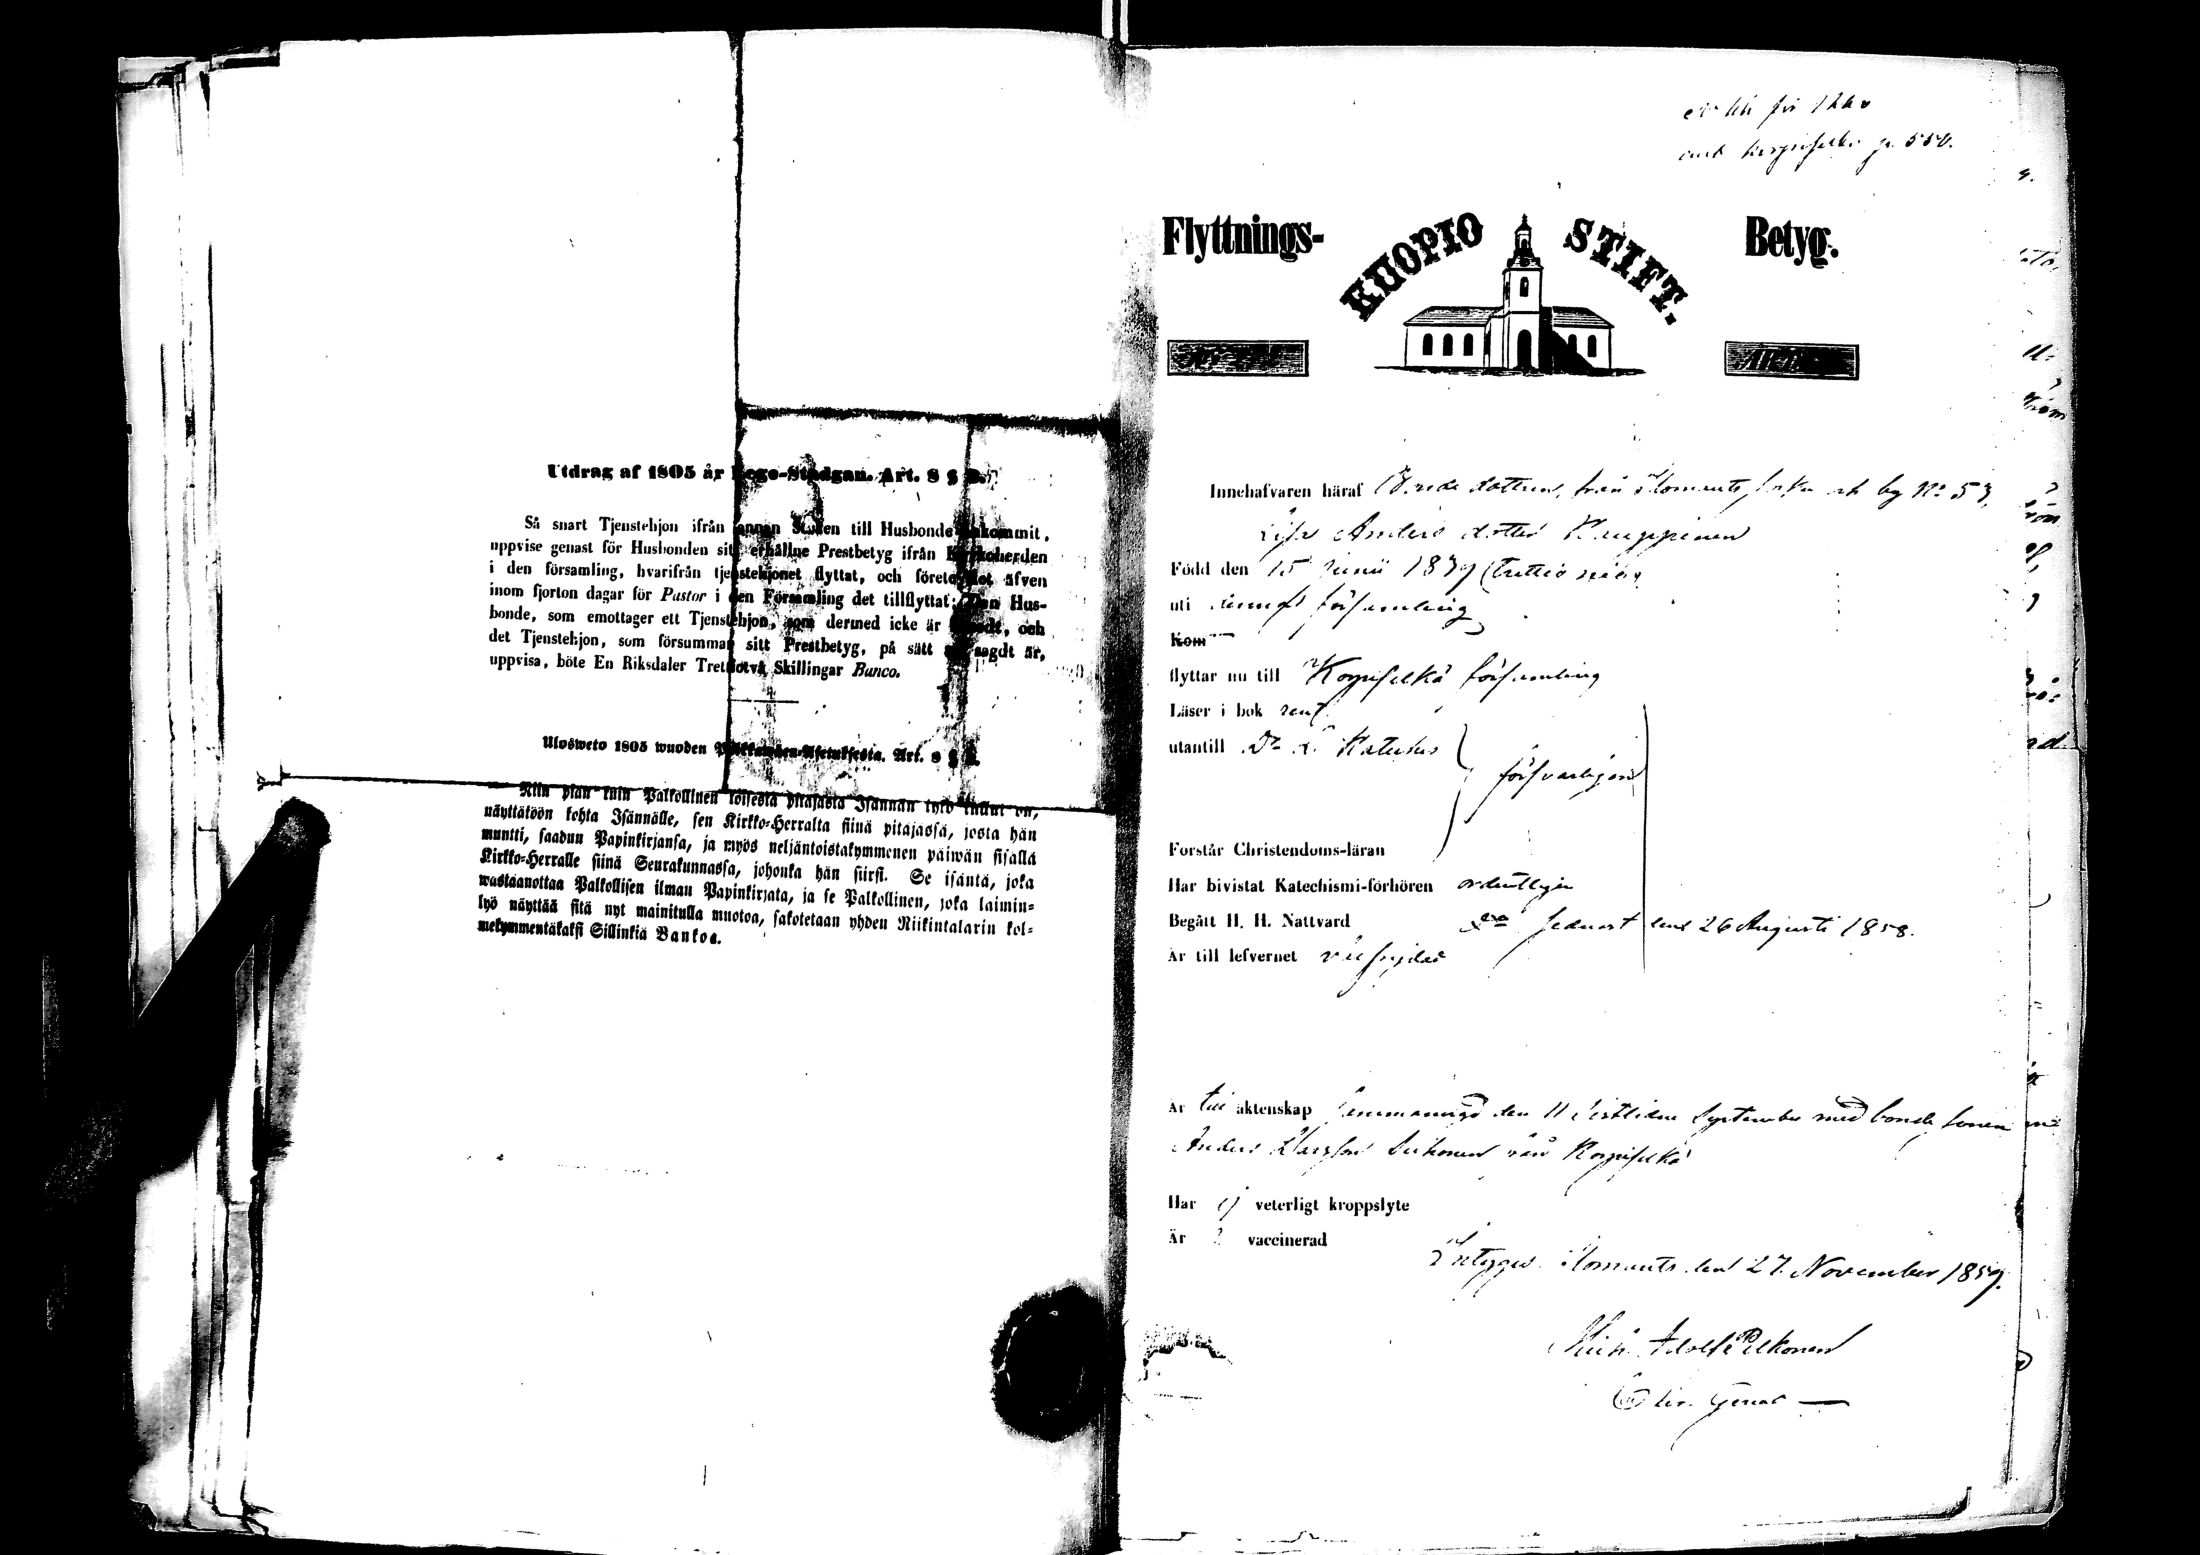 Utdrag af 1805 år Lego-Stadgan. Art. 8 §
Så snart Tjenstehjon ifrån annan Staden till Husbonde ankommit,
uppvise genast för Husbonden sitt erhållne Prestbetyg ifrån Kyrkoherden
i den församling, hvarifrån tjenstehjonet flyttat, och förete det äfven
inom fjorton dagar för Pastor i den Församling det tillflyttat; Den Hus-
bonde, som emottager ett Tjenstehjon, som dermed icke är försedt, och
det Tjenstehjon, som försummar sitt Prestbetyg, på sätt nu sagdt är,
uppvisa, böte En Riksdaler Trettiotvå Skillingar Banco.
Ulosweto 1805 wuoden Palkkawäen-Asetuksesta. Art. 8 §
Niin pian kuin Palkollinen toisesta pitäjästä Isännän työ tullut on,
näyttäköön kohta Isännälle, sen Kirkko-Herralta siinä pitäjässä, josta hän
muutti, saadun Papinkirjansa, ja myös neljäntoistakymmenen päiwän sisällä
Kirkko-Herralle siinä Seurakunnassa, johonka hän siirsi. Se isäntä, joka
wastaanottaa Palkollisen ilman Papinkirjata, ja se Palkollinen, joka laimin-
lyö näyttää sitä nyt mainitulla muotoa, sakotetaan yhden Riikintalarin kol-
mekymmentäkaksi Sillinkiä Bankoa.
p. 550.
Flyttnings- KUOPIO STIFT. Betyg.
Innehafvaren häraf Bonde dottren, från Ilomants by No 53,
Lisa Anders dotter Kauppinen
Född den 15 Junii 1839 (trettio nio)
uti församling
Kom
flyttar nu till Korpiselkä församling
Läser i bok rent
utantill Dr L Kateches
försvarligen
Förstår Christendoms-läran
Har bivistat Katechismi-förhören ordentligen
Begått H. H. Nattvard senast den 26 Augusti 1858.
Är till lefvernet välfrejdad
Är till äktenskap sammanvigd den 11 sistlidne September med bonde sonen
Anders Larsson från Korpiselkä
Har ej veterligt kroppslyte
Är vaccinerad
Intygar Ilomants den 27 November 1859.
Adolf Pelkonen